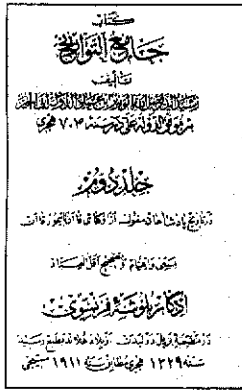 كتاب
جامع التواريخ
تأليف
رشيد الدين فضل الله
جلد دوم
در تاريخ پادشاهان مغول از اوكتاى قاآن تا تيمور قاآن
بسعى و اهتمام و تصحيح اقل العباد
ادگار بلوشه فرنسوى
در مطبعهٔ بريل در ليدن از بلاد هلاند بطبع رسيد
سنه ۱۳۲۹ هجرى مطابق سنه ۱۹۱۱ مسيحى